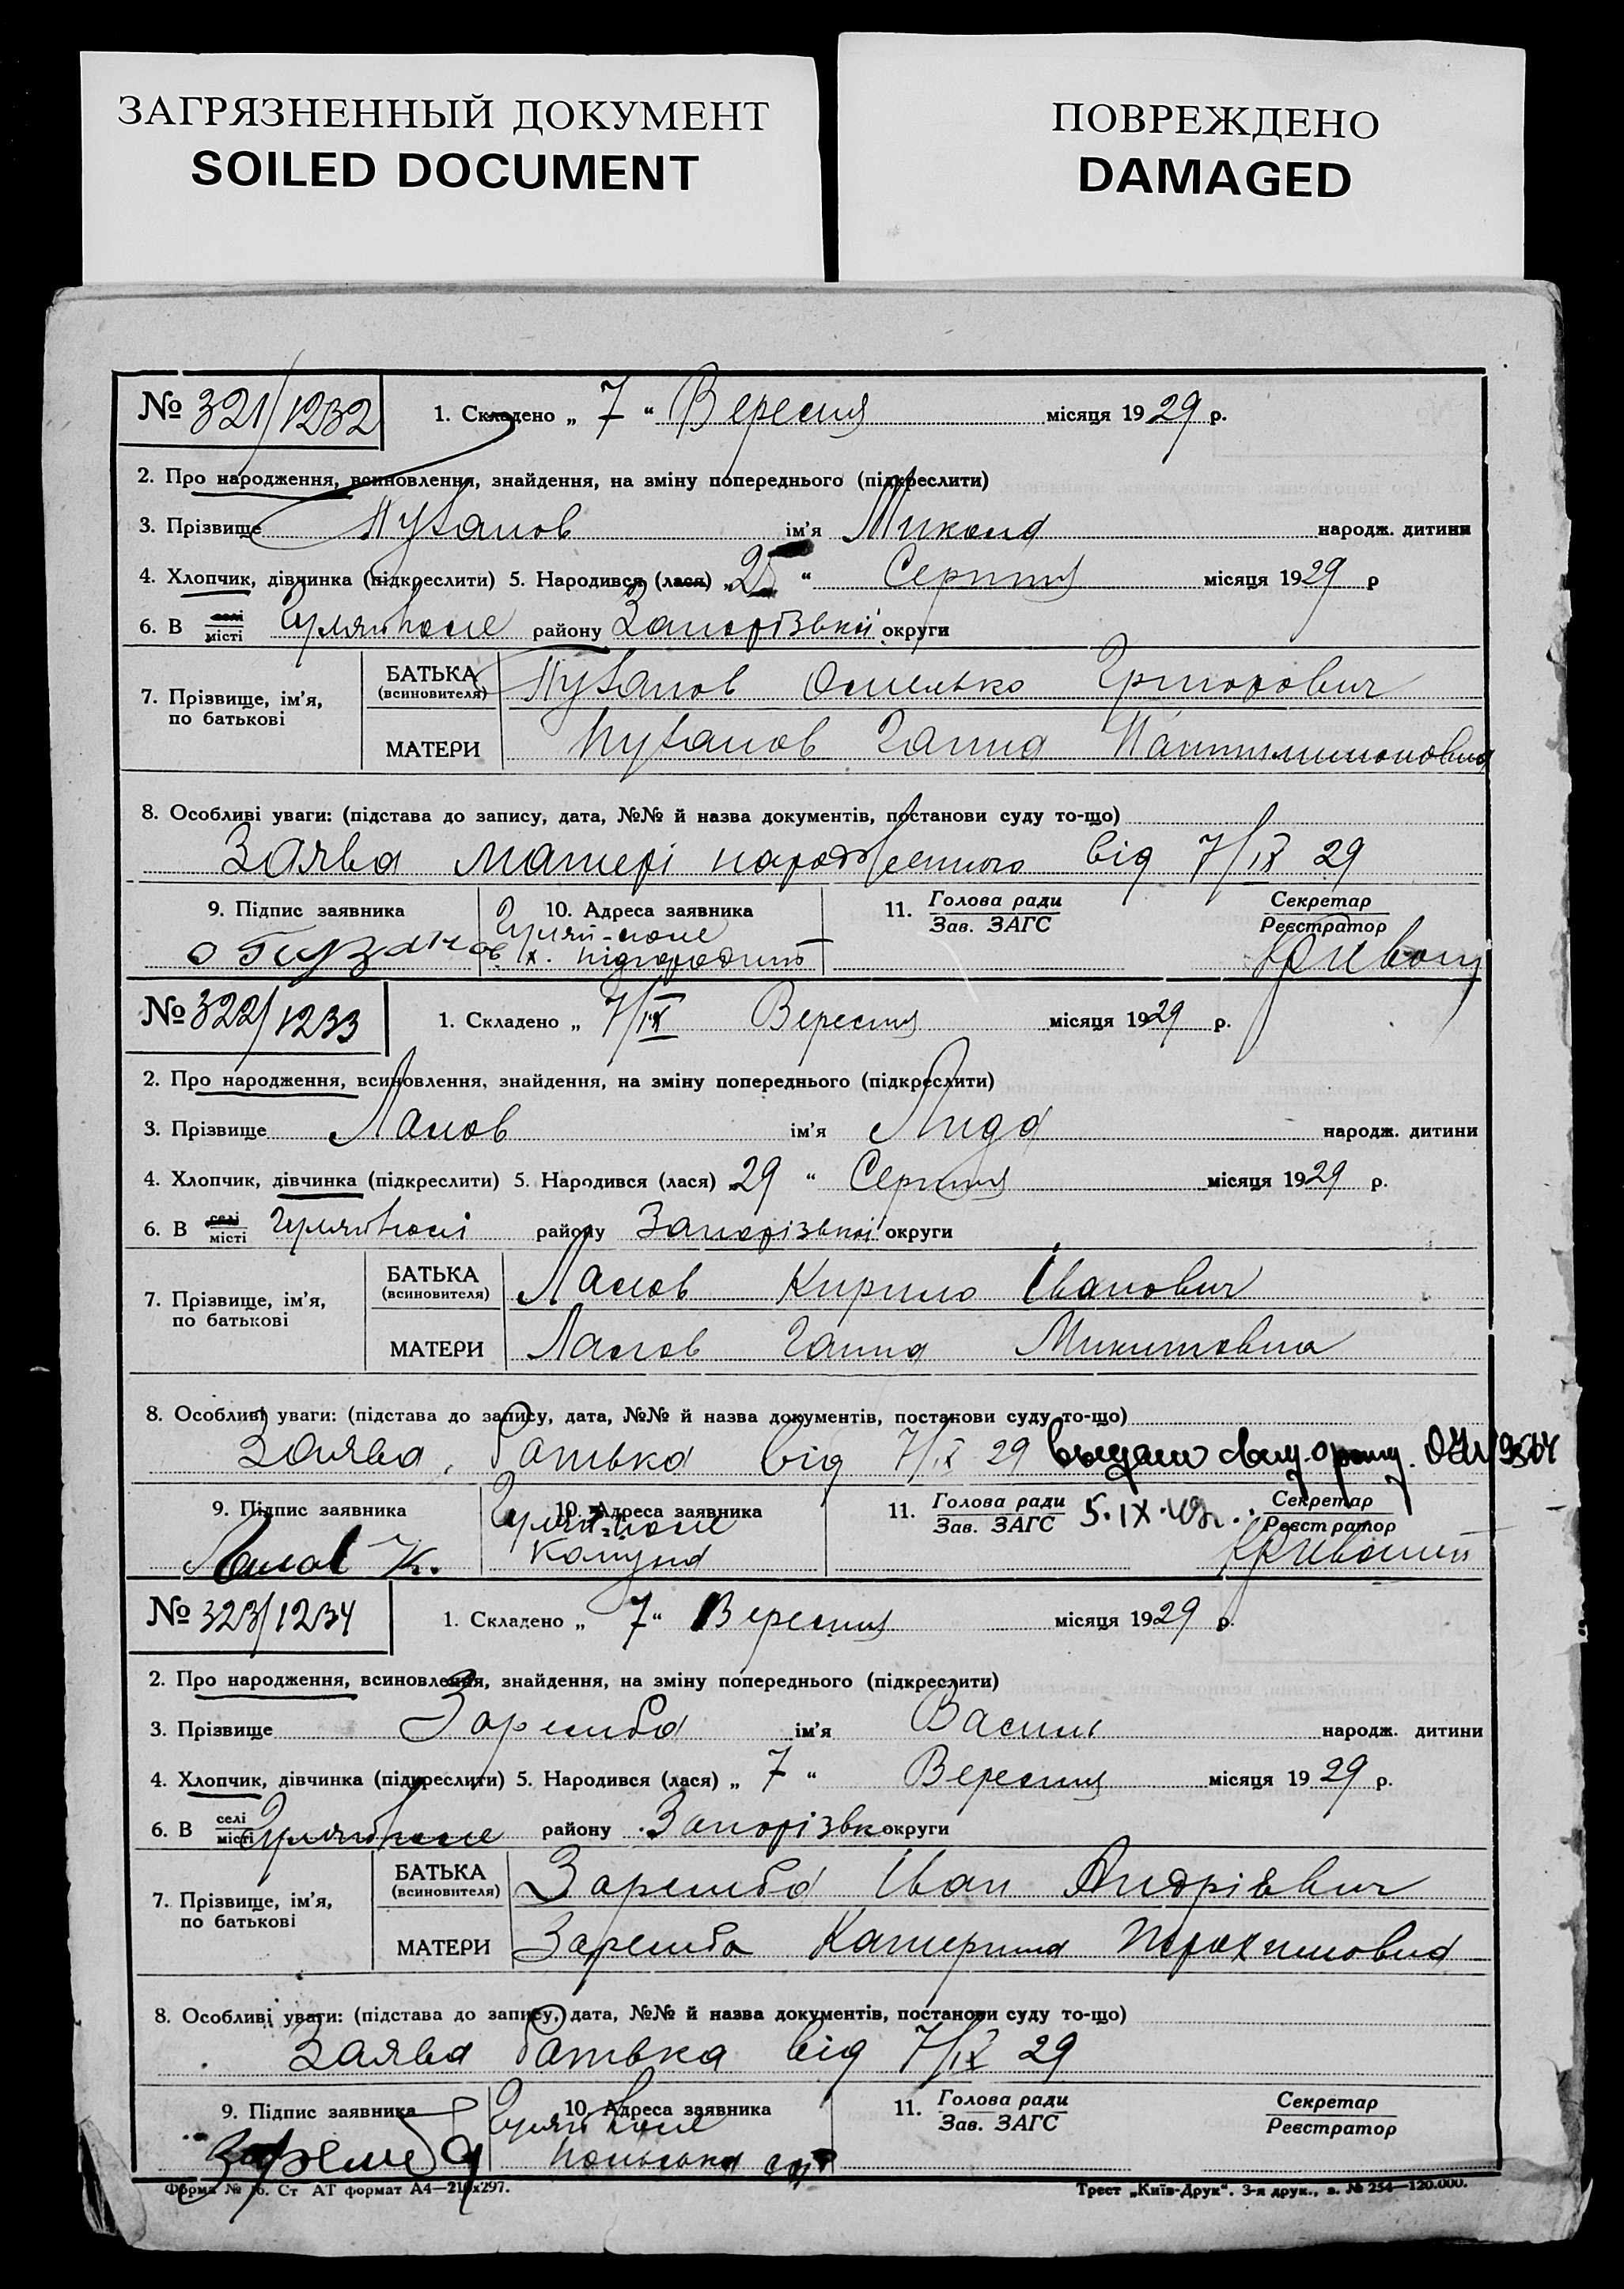 ЗАГРЯЗНЕННЫЙ ДОКУМЕНТ
SOILED DOCUMENT
ПОВРЕЖДЕНО
DAMAGED
№ 321/1232 1. Складено „ 7 “ Вересня місяця 1929 р.
2. Про народження, всиновлення, знайдення, на зміну попереднього (підкреслити)
3. Прізвище Пузанов ім'я Микола народж. дитини
4. Хлопчик, дівчинка (підкреслити) 5. Народився (лася) „ 25 “ Серпня місяця 1929 р
6. В селі місті Гуляйполе району Запорізької округи
7. Прізвище, ім'я, по батькові
БАТЬКА (всиновителя) Пузанов Омелько Григорович
МАТЕРИ Пузанов Ганна Пантилимоновна
8. Особливі уваги: (підстава до запису, дата, №№ й назва документів, постанови суду то-що)
Заява матері народженного від 7/IX 29
9. Підпис заявника 10. Адреса заявника 11. Голова ради Зав. ЗАГС Секретар Реєстратор
Гуляй-поле
№ 322/1233 1. Складено „ 7/IX Вересня місяця 1929 р.
2. Про народження, всиновлення, знайдення, на зміну попереднього (підкреслити)
3. Прізвище Ламов ім'я Лида народж. дитини
4. Хлопчик, дівчинка (підкреслити) 5. Народився (лася) 29 “ Серпня місяця 1929 р.
6. В селі місті Гуляйполі району Запорізької округи
7. Прізвище, ім'я, по батькові
БАТЬКА (всиновителя) Ламов Кирило Іванович
МАТЕРИ Ламов Ганна Микитовна
8. Особливі уваги: (підстава до запису, дата, №№ й назва документів, постанови суду то-що)
Заява батька від 7/IX 29
9. Підпис заявника 10. Адреса заявника 11. Голова ради Зав. ЗАГС 5.IX.49г. Секретар Реєстратор
Ламов К. Гуляй-поле Комуна
№ 323/1234 1. Складено „ 7 “ Вересня місяця 1929 р.
2. Про народження, всиновлення, знайдення, на зміну попереднього (підкреслити)
3. Прізвище Заремба ім'я Василь народж. дитини
4. Хлопчик, дівчинка (підкреслити) 5. Народився (лася) „ 7 “ Вересня місяця 1929 р.
6. В селі місті Гуляйполе району Запорізьк округи
7. Прізвище, ім'я, по батькові
БАТЬКА (всиновителя) Заремба Іван Андрієвич
МАТЕРИ Заремба Катерина
8. Особливі уваги: (підстава до запису, дата, №№ й назва документів, постанови суду то-що)
Заява батька від 7/IX 29
9. Підпис заявника 10. Адреса заявника 11. Голова ради Зав. ЗАГС Секретар Реєстратор
Заремба Гуляйполе
Форма № 16. Ст АТ формат А4—210х297. Трест „Київ-Друк“. 3-я друк., з. № 254—120.000.